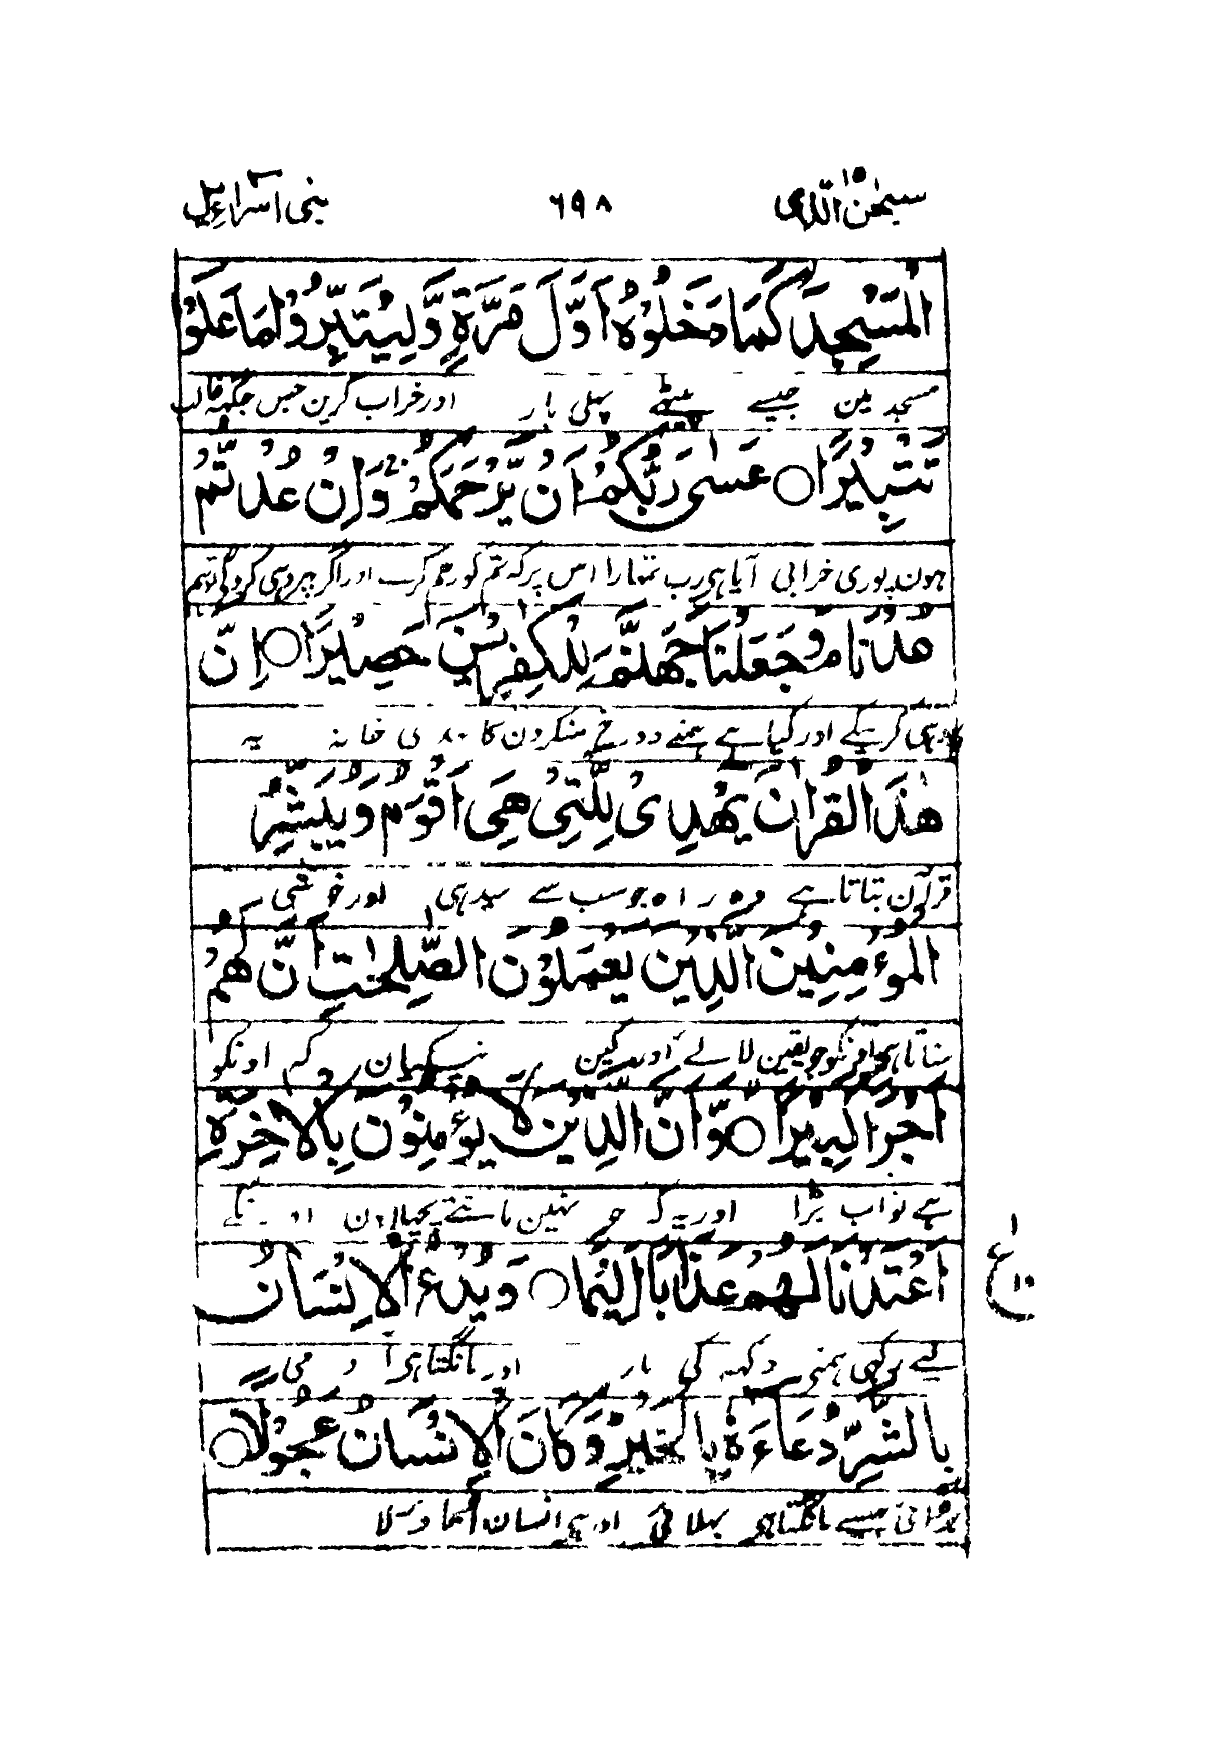 سبحٰن الذی ١٥ ٦٩٨ بنی اسراءیل ١٧
الْمَسْجِدَ كَمَا دَخَلُوْهُ اَوَّلَ مَرَّةٍ وَّلِيُتَبِّرُوْا مَا عَلَوْا
مسجد مین جیسے پیٹھے پہلی بار اور خراب کرین جس جگہہ غالب
تَتْبِيْرًا ○ عَسٰى رَبُّكُمْ اَنْ يَّرْحَمَكُمْ وَاِنْ عُدْتُّمْ
ہون پوری خرابی آیا ہی رب تمہارا اس پر کہ تم کو رحم کرے اور اگر پھر وہی کروگے تو ہم
عُدْنَا وَجَعَلْنَا جَهَنَّمَ لِلْكٰفِرِيْنَ حَصِيْرًا ○ اِنَّ
وہی کرینگے اور کیا ہے ہمنے دوزخ منکرون کا بندی خانہ یہ
هٰذَا الْقُرْاٰنَ يَهْدِىْ لِلَّتِىْ هِىَ اَقْوَمُ وَيُبَشِّرُ
قرآن بتاتا ہے وہ راہ جو سب سے سیدہی اور خوشی
الْمُؤْمِنِيْنَ الَّذِيْنَ يَعْمَلُوْنَ الصّٰلِحٰتِ اَنَّ لَهُمْ
سناتا ہی اونکو جو یقین لائے اور کین نیکیان کہ اونکو
اَجْرًا كَبِيْرًا ○ وَّاَنَّ الَّذِيْنَ لَا يُؤْمِنُوْنَ بِالْاٰخِرَةِ
ہے ثواب بڑا اور یہ کہ جو نہین مانتے پچھلا دن اونکے
اَعْتَدْنَا لَهُمْ عَذَابًا اَلِيْمًا ○ وَيَدْعُ الْاِنْسَانُ
لیے رکہی ہمنے دکہہ کی مار اور مانگتا ہی آدمی
ع ١ ١٠
بِالشَّرِّ دُعَاءَهٗ بِالْخَيْرِ وَكَانَ الْاِنْسَانُ عَجُوْلًا ○
برائی جیسے مانگتا ہی بہلائی اور ہی انسان اُتاولا